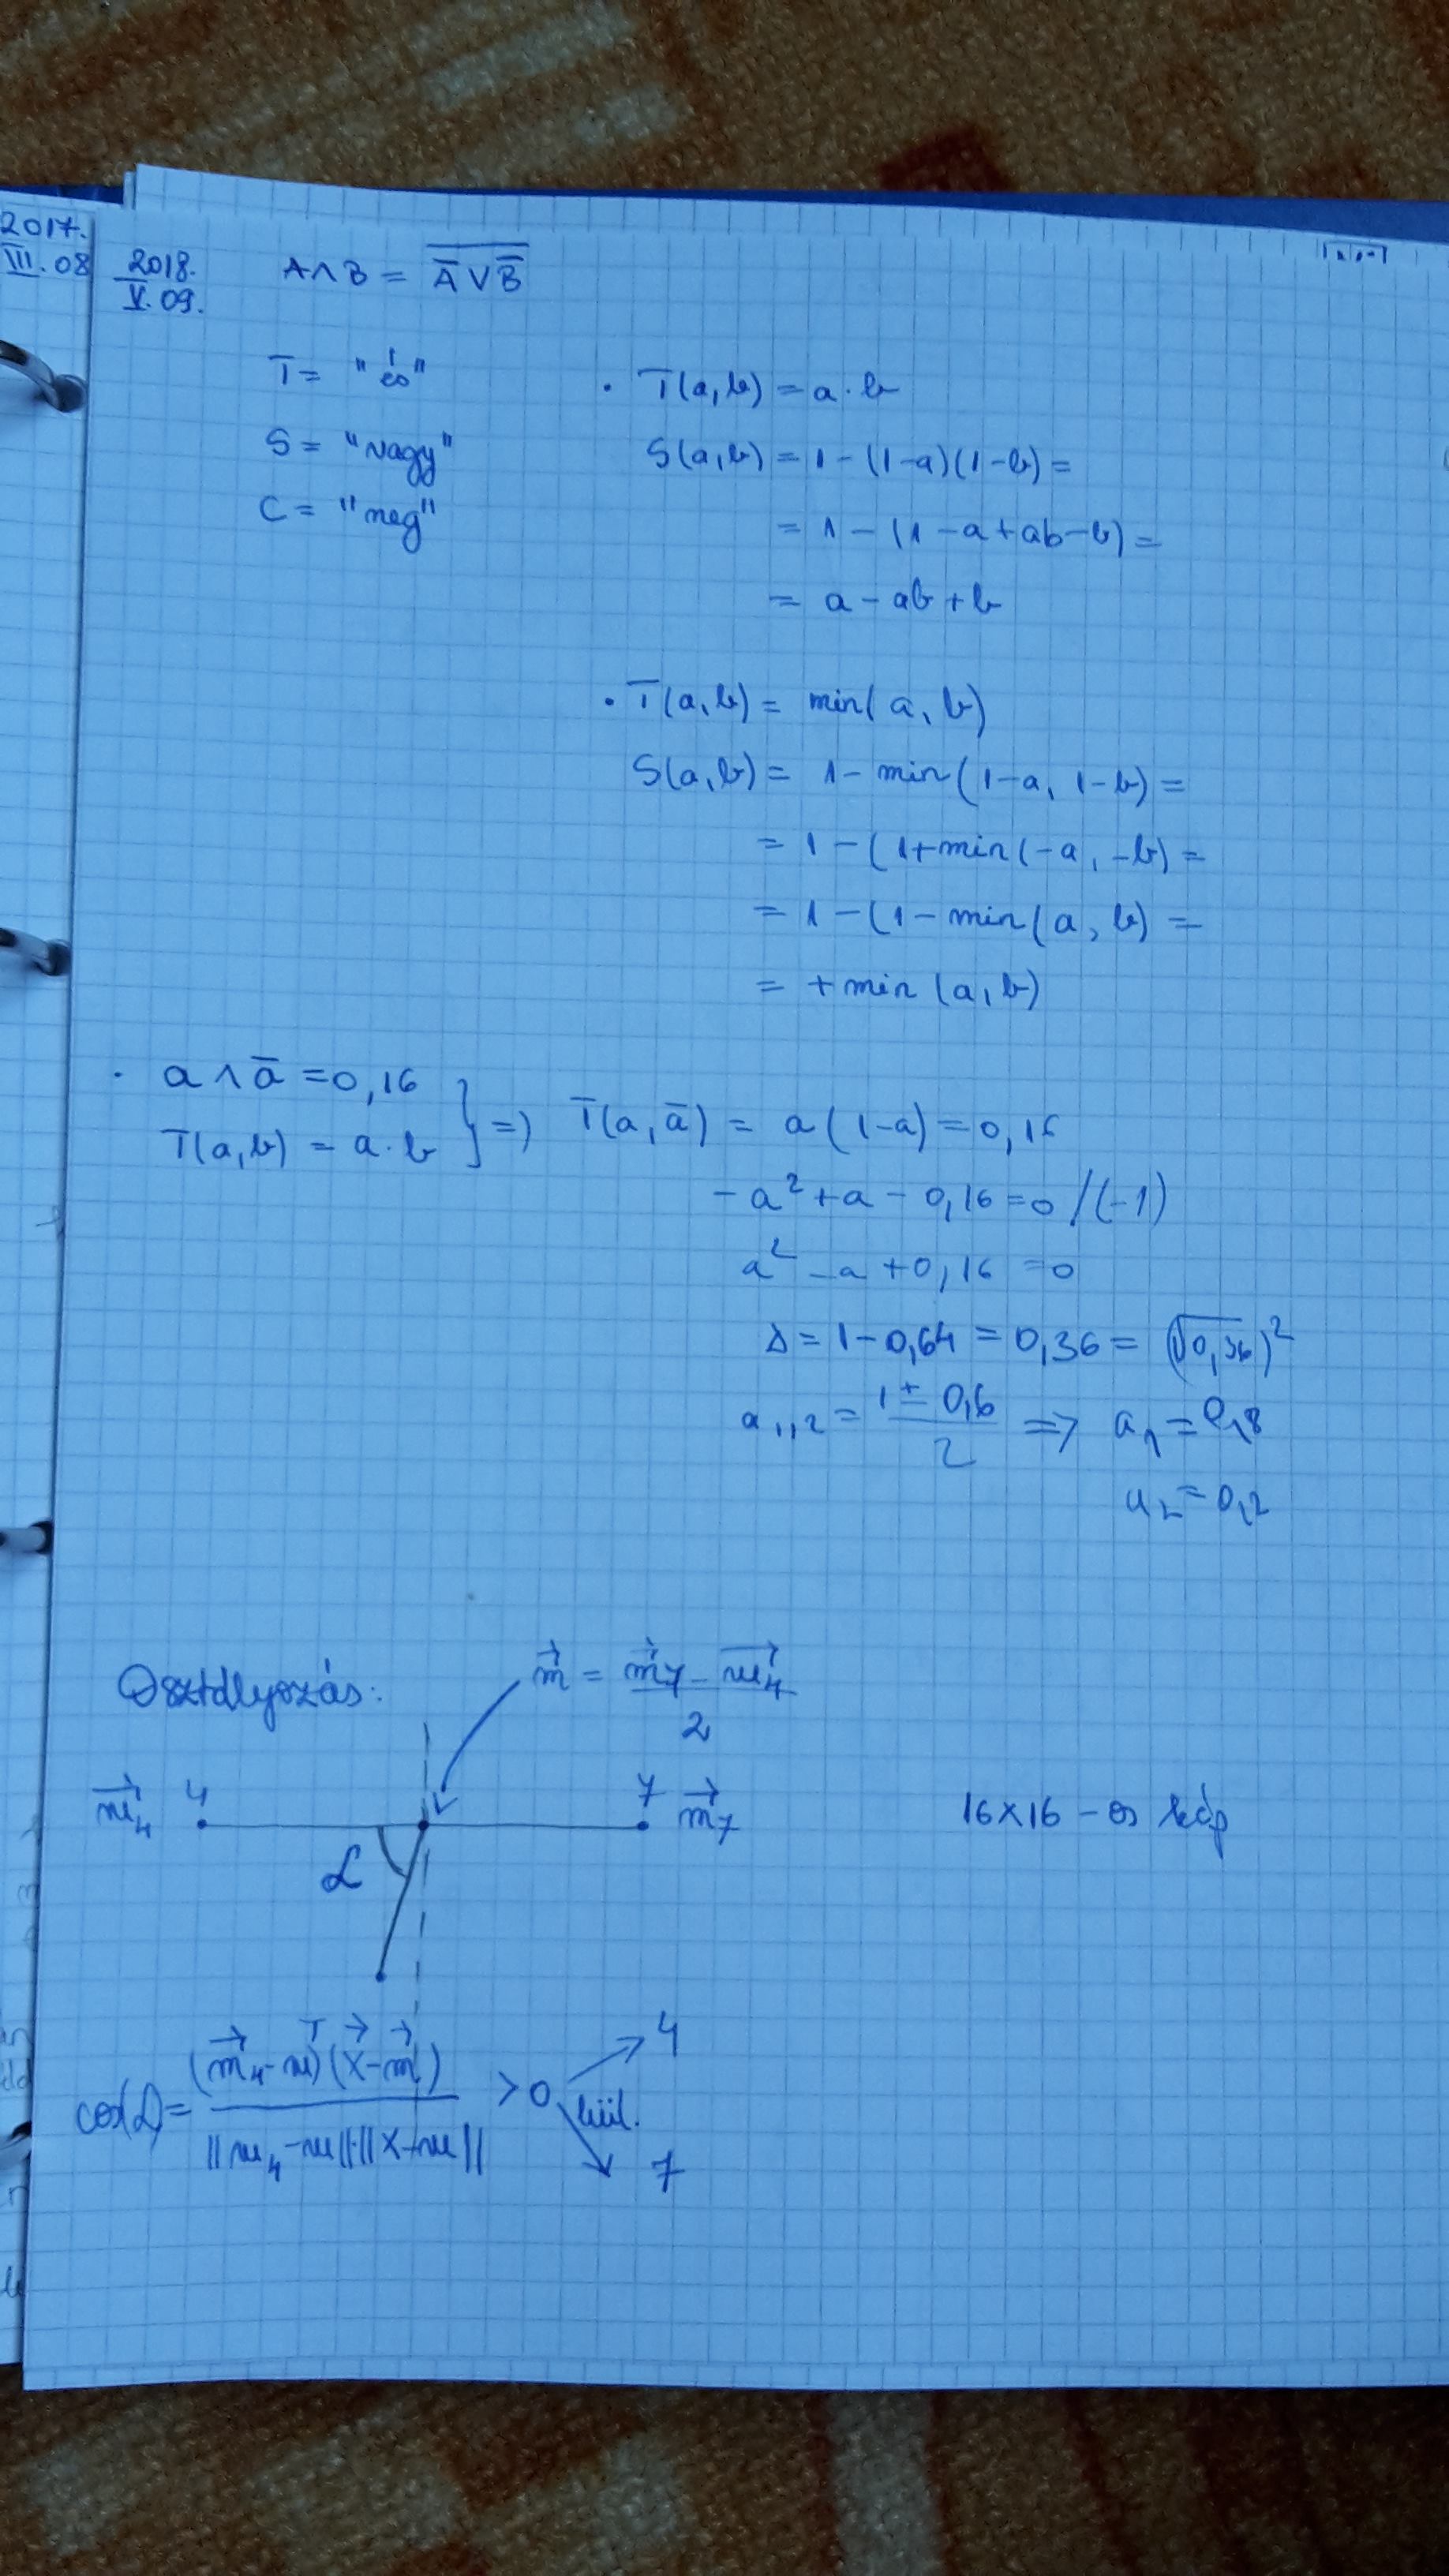 2017.
VII. 08
2018.
V. 09.
A∧B = \overline{\overline{A} ∨ \overline{B}}
T = "és"
S = "vagy"
C = "neg"
· T(a,b) = a·b
S(a,b) = 1-(1-a)(1-b) =
= 1-(1-a+ab-b) =
= a-ab+b
· T(a,b) = min(a,b)
S(a,b) = 1-min(1-a, 1-b) =
= 1-(1+min(-a,-b) =
= 1-(1-min(a,b) =
= +min(a,b)
· a∧\overline{a} = 0,16
T(a,b) = a·b } => T(a,\overline{a}) = a(1-a) = 0,16
-a²+a-0,16=0 /(-1)
a²-a+0,16=0
Δ = 1-0,64 = 0,36 = (√0,36)²
a₁,₂ = \frac{1±0,6}{2} => a₁ = 0,8
a₂ = 0,2
Osztályozás:
\vec{m} = \frac{\vec{m_7} - \vec{m_4}}{2}
\vec{m_4} 4 7 \vec{m_7}
16×16-os kép
α
cos(α) = \frac{(\vec{m_4}-m)^T(\vec{x}-\vec{m})}{||m_4-m||·||x-m||} >0 → 4
kül. → 7